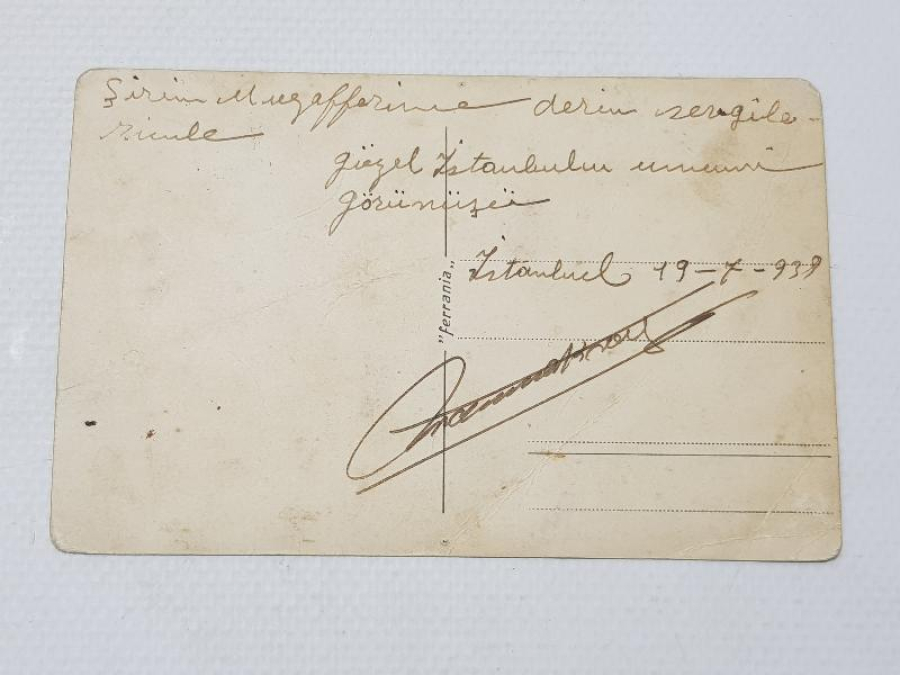 Şirin Muzafferime derin sevgile-
rimle
Güzel İstanbulun umumî
görünüşü
İstanbul 19-7-939
"ferrania"